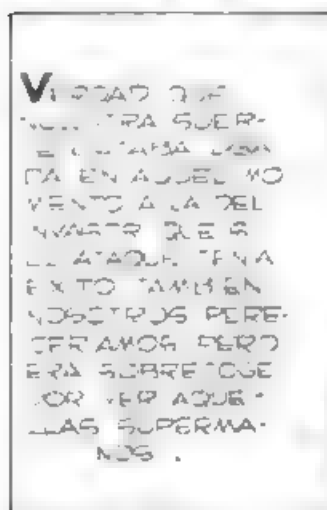 VERDAD QUE
NUESTRA SUER-
TE ESTABA
DA EN AQUEL MO
MENTO A LA DEL
INVASOR QUE SI
EL ATAQUE TENIA
EXITO TAMBIEN
NOSOTROS PERE-
CERIAMOS PERO
ERA SOBRECOGE
DOR VER AQUE-
LLAS SUPERMA-
NOS.